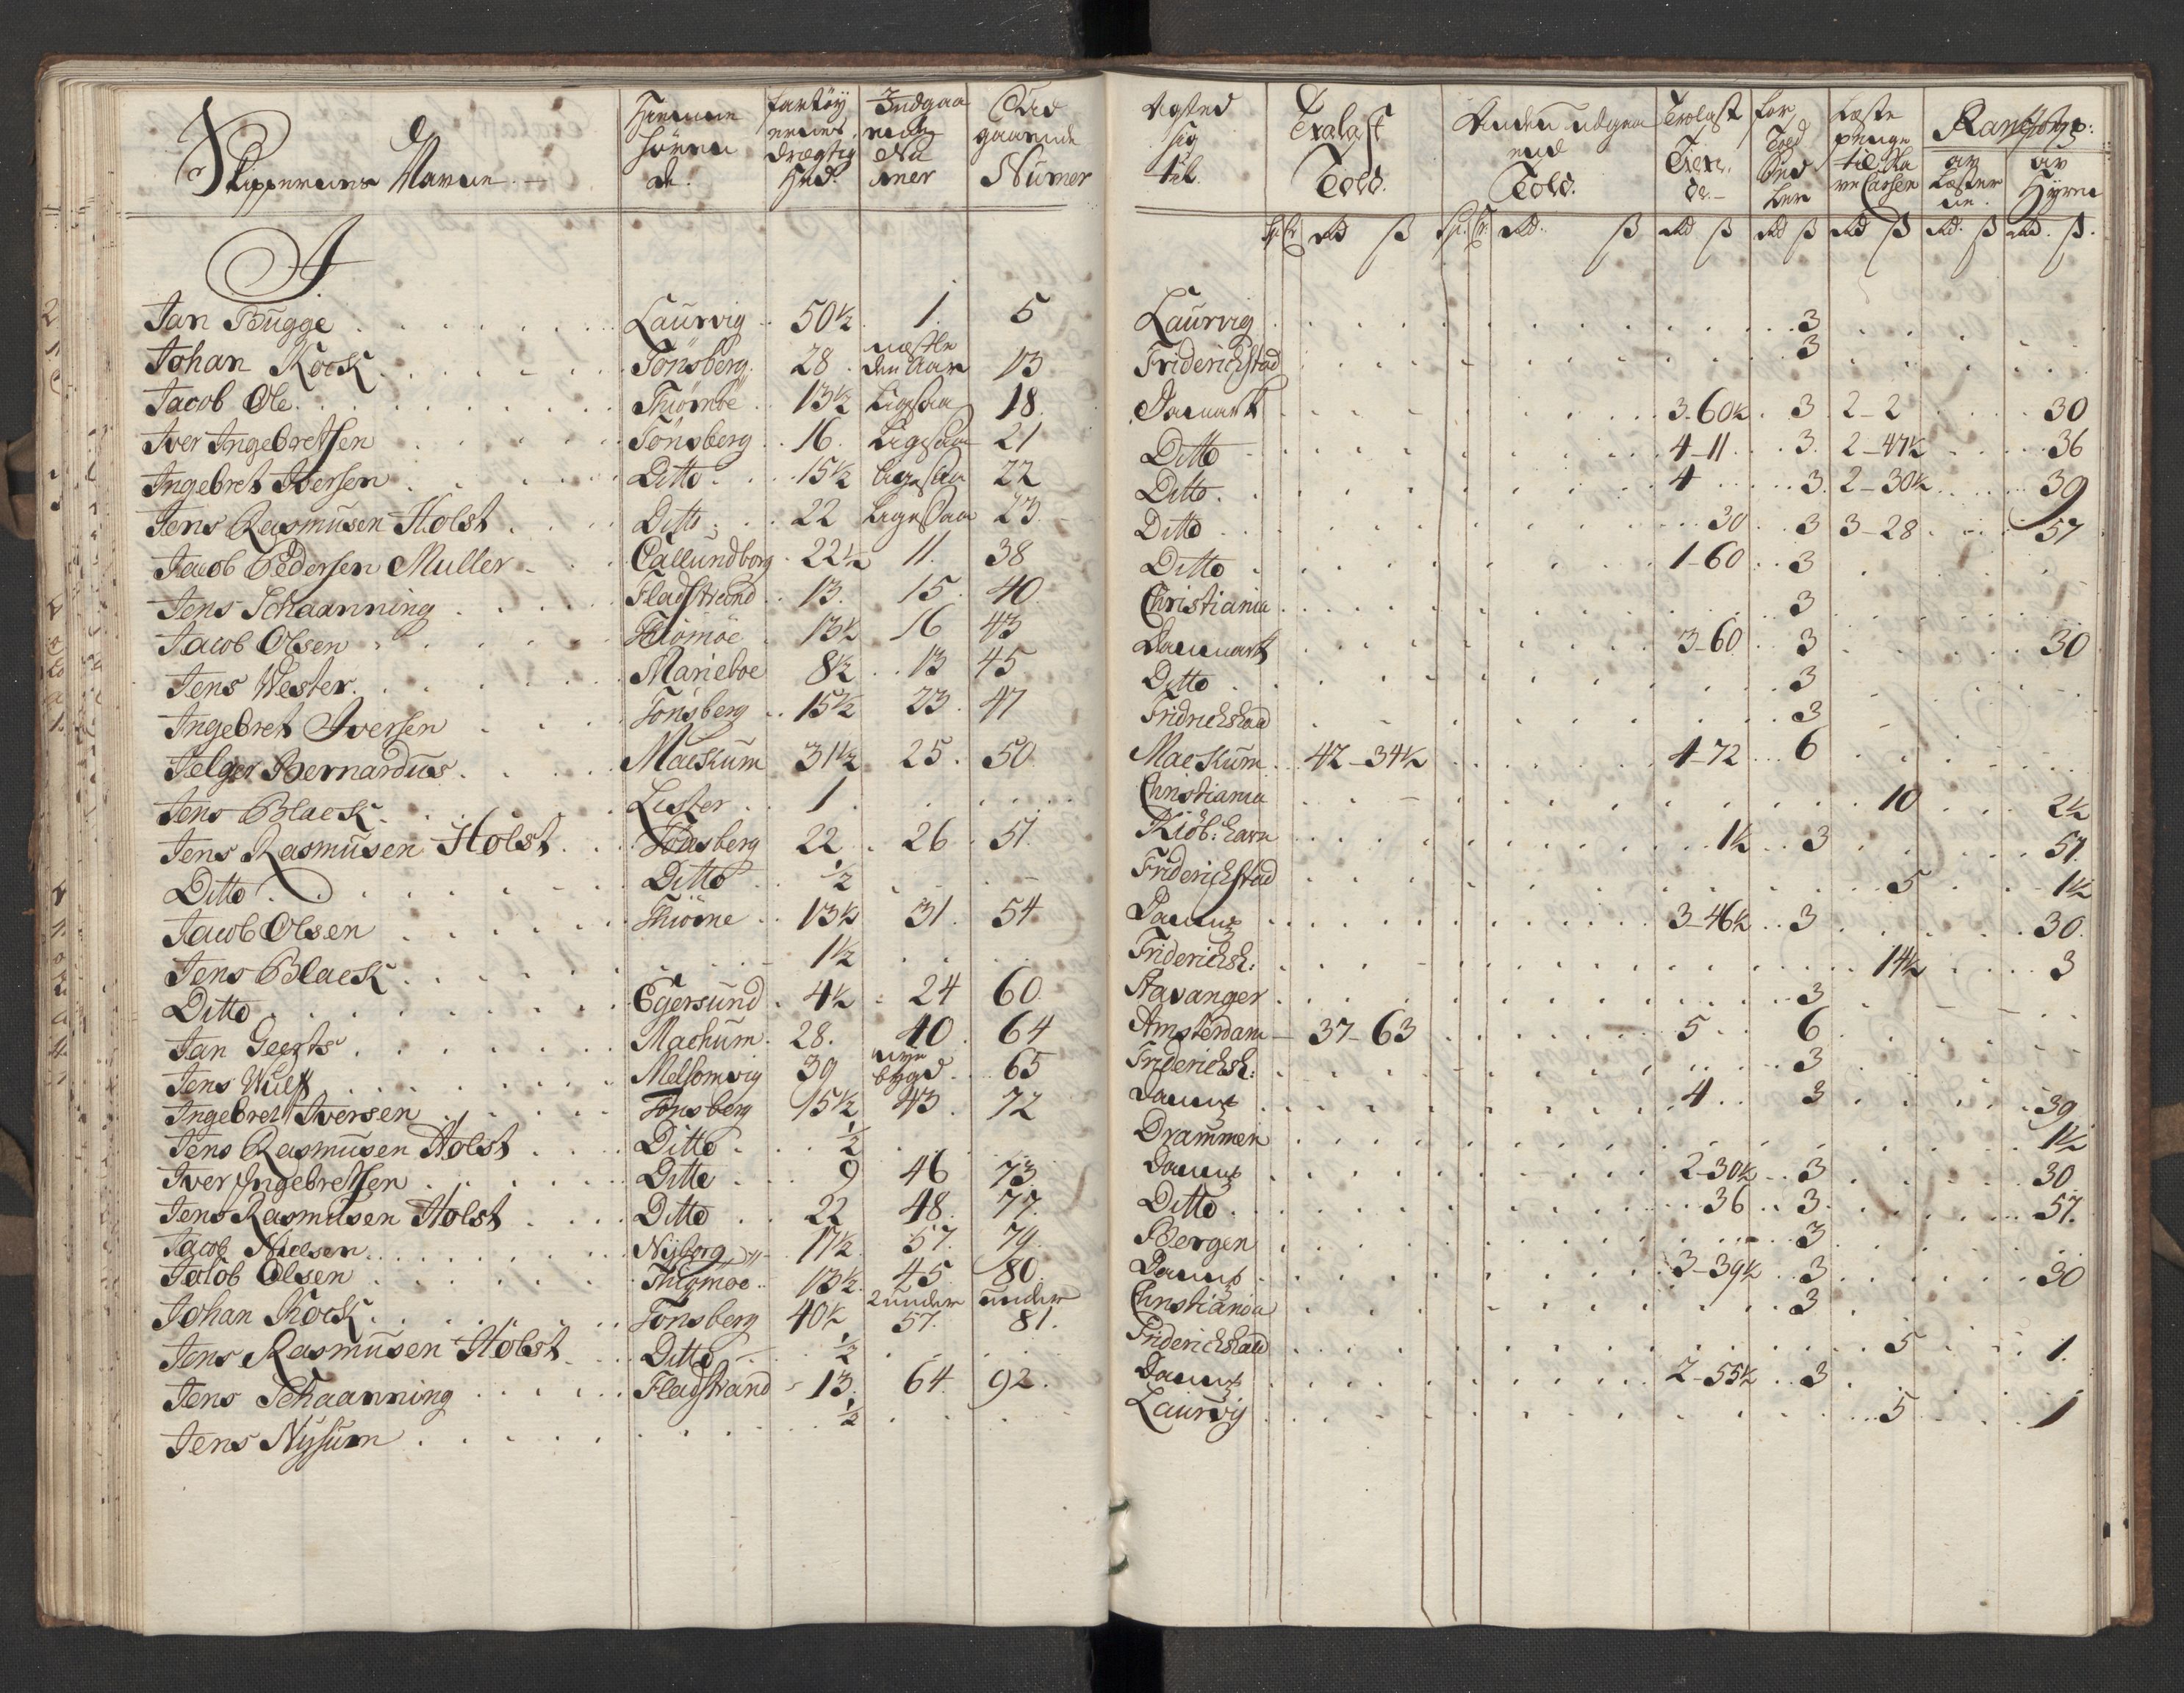 Skippernes Navne
Hiemme
hören
de.
fartöy
ernes
drægtig
Hed.
Indgaa
ende
Nu
mer
Ud
gaaende
Numer
Agted
sig
til.
Trælast
Told.
Anden udgaa
end
Told.
Trælast
Tien
de.
for
Toed
Sed
len
Læste
penge
til Na
ve Cassen
Ranssons:
av
Læster
ne.
av
Hyren
J.
Jan Bugge Laurvig 50½ 1. 5 Laurvig 3
Johan Kock Tönsberg 28 næstle den Aar 13 Friderichstad 3
Jacob Ole Thiömöe 13½ Ligesaa 18. Danmark 3-60½ 3 2-2 30
Iver Ingebretsen Tönsberg 16. Ligesaa 21 Ditto 4-11 3. 2-47½ 36
Ingebret Iversen Ditto 15½ Ligesaa 22 Ditto 4 3. 2-30½ 39
Jens Rasmusen Holst Ditto 22 Ligesaa 23 Ditto 30 3 3-28 57
Jacob Pedersen Muller Callundborg 22½ 11. 38 Ditto 1-60 3
Jens Schaanning Fladstrand 13. 15. 40. Christiania 3
Jacob Olsen Thiömöe 13½ 16 43 Danmark 3-60 3 30
Jens Wester Marieboe 8½ 13 45 Ditto 3
Ingebret Iversen Tönsberg 15½ 23. 47 Fridrichstad 3
Jelger Bernardus Mackum 31½ 25. 50 Mackum 42-34½ 4-72 6
Jens Black Lister 1. Christiania 10 2½
Jens Rasmusen Holst Tönsberg 22 26 51. Kiöb:havn 1½ 3 57.
Ditto Ditto ½ Friderichstad 5 1½
Jacob Olsen Thiöme 13½ 31. 54 Danm 3-46½ 3 30.
Jens Black 1½ Friderichsh: 14½ 3
Ditto Egersund 4½ 24 60. Stavanger 3
Jan Geerts Machum 28. 40 64 Amsterdam 37-63 5 6
Jens Wulf Melsomvig 39 nye bygd 65 Friderichsh: 3
Ingebret Iversen Tönsberg 15½ 43. 72 Danm 4 3 39
Jens Rasmusen Holst Ditto ½ Drammen 1½
Iver Ingebretsen Ditto 9 46 73 Danm 2-30½ 3 30
Jens Rasmusen Holst Ditto 22 48. 77. Ditto 36 3 57.
Jacob Nielsen Nyborg 17½ 57. 79. Bergen 3
Jacob Olsen Thiömöe 13½ 45 80. Danm 3-39½ 3 30
Johan Kock Tönsberg 40½ 2 under 57. under 81. Christiania 3
Jens Rasmusen Holst Ditto ½ Friderichstad 5 1.
Jens Schaanning Fladstrand 13. 64. 92. Danm 2-55½ 3
Jens Nysum ½ Laurvig 5 1